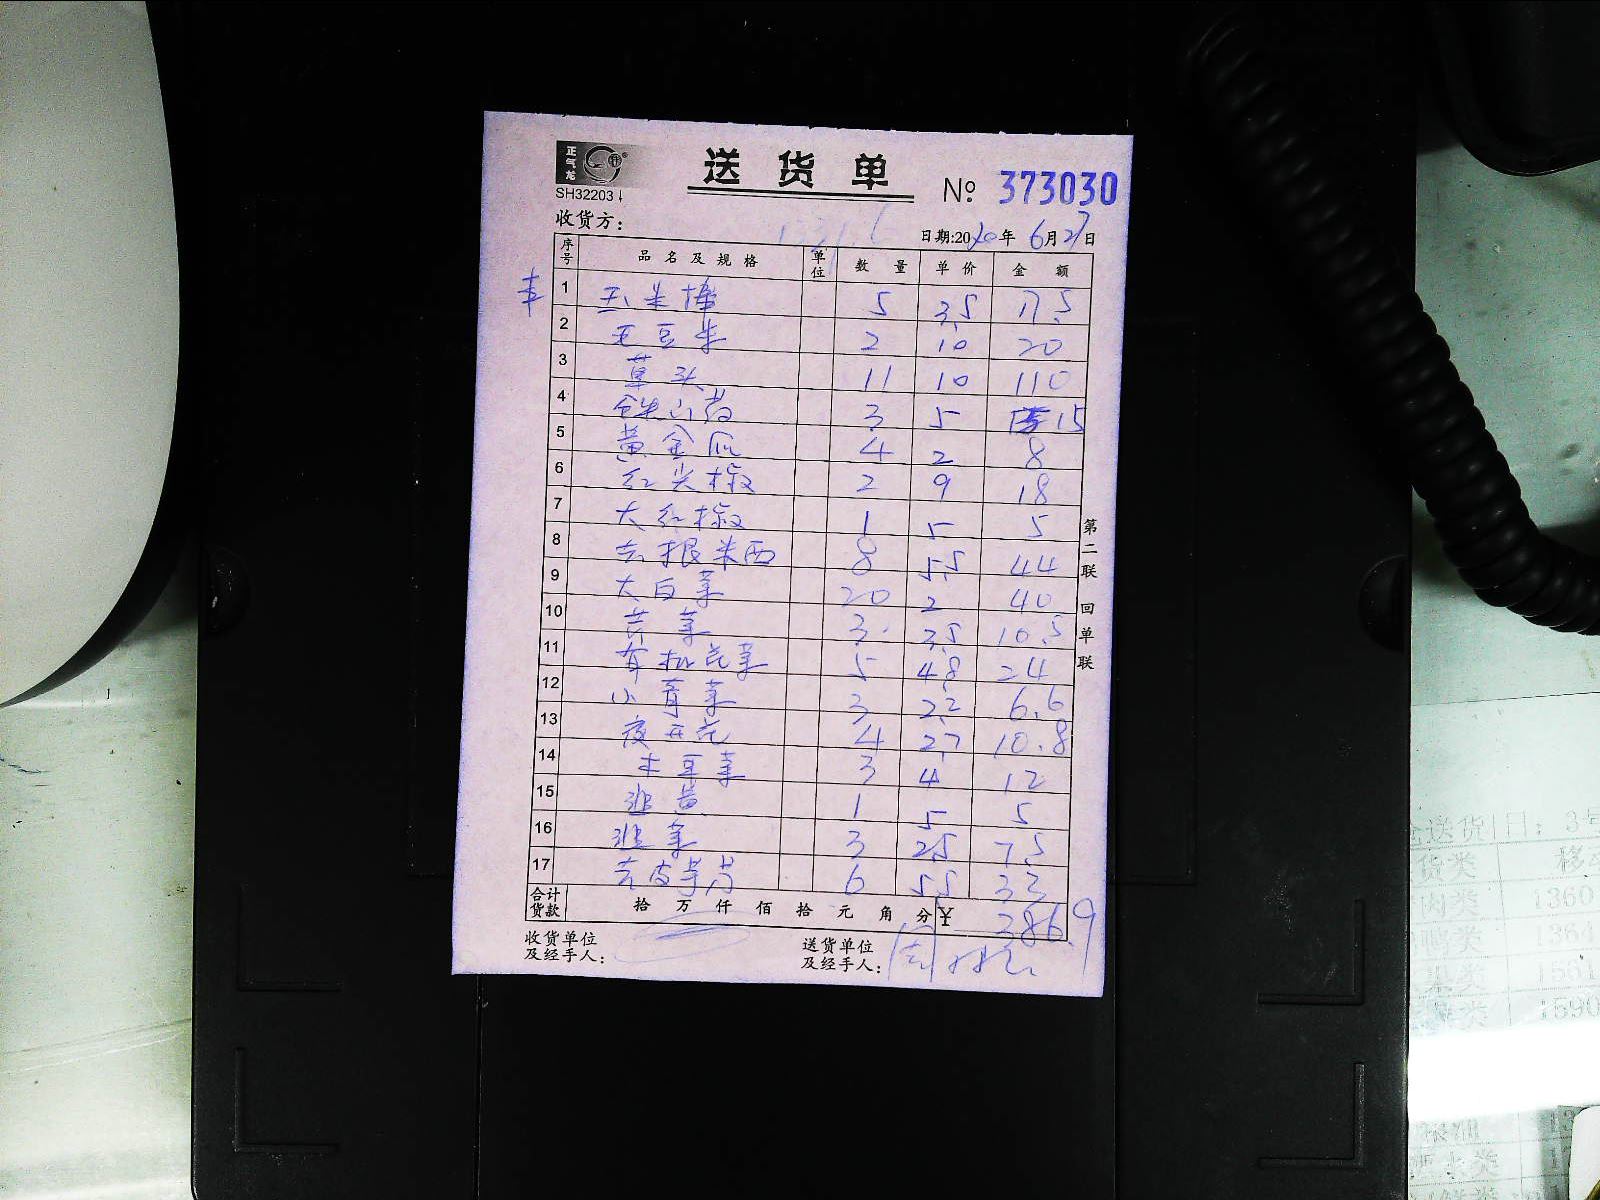 正气龙
SH32203
送货单
№ 373030
收货方：
日期:2020年6月27日
序号 品名及规格 单位 数量 单价 金额
丰
1 玉米棒 5 3.5 17.5
2 毛豆米 2 10 20
3 草头 11 10 110
4 铁山药 3 5 15
5 黄金瓜 4 2 8
6 红尖椒 2 9 18
7 大红椒 1 5 5
8 去根米西 8 5.5 44
9 大白菜 20 2 40
10 芹菜 3 3.5 10.5
11 有机花菜 5 4.8 24
12 小青菜 3 2.2 6.6
13 夜开花 4 2.7 10.8
14 木耳菜 3 4 12
15 韭黄 1 5 5
16 韭菜 3 2.5 7.5
17 去皮莴笋 6 5.5 33
合计货款 拾 万 仟 佰 拾 元 角 分 ¥ 386.9
收货单位及经手人：
送货单位及经手人：
第二联 回单联
送货日：3号
货类 移
肉类 1360
类 1364
果类 1561
类 1590